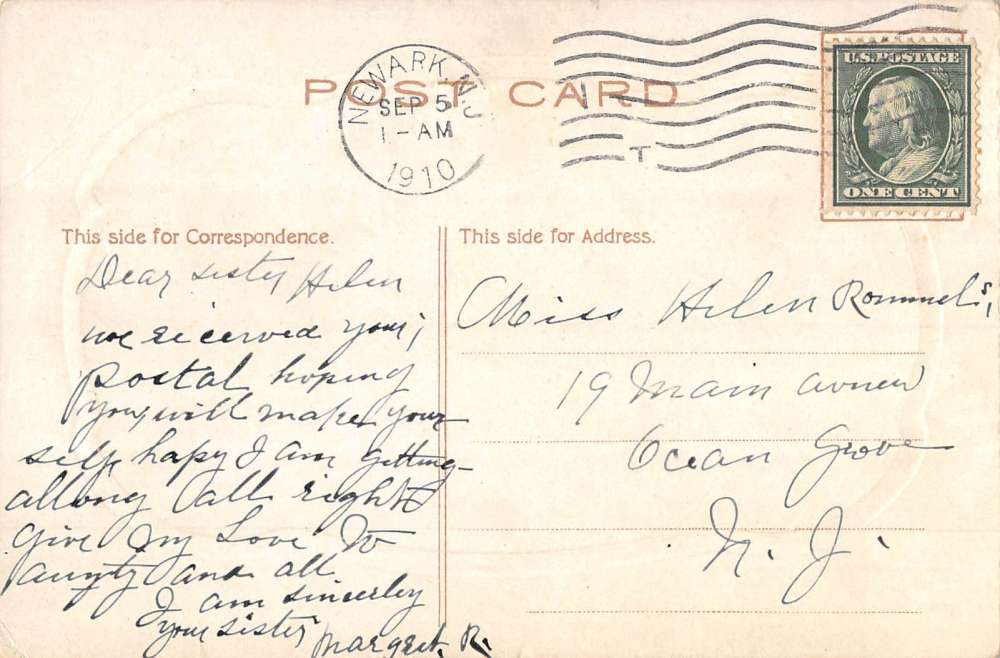 POST CARD
NEWARK, N.J.
SEP 5
1-AM
1910
T
U.S. POSTAGE
ONE CENT
This side for Correspondence.
Dear sister Helen
we recieved your
postal hoping
you will make your
self hapy I am getting
allong all right
give my Love to
aunty and all
I am sincerley
your sister Margret. R.
This side for Address.
Miss Helen Rommel
19 Main
Ocean Grove
N. J.